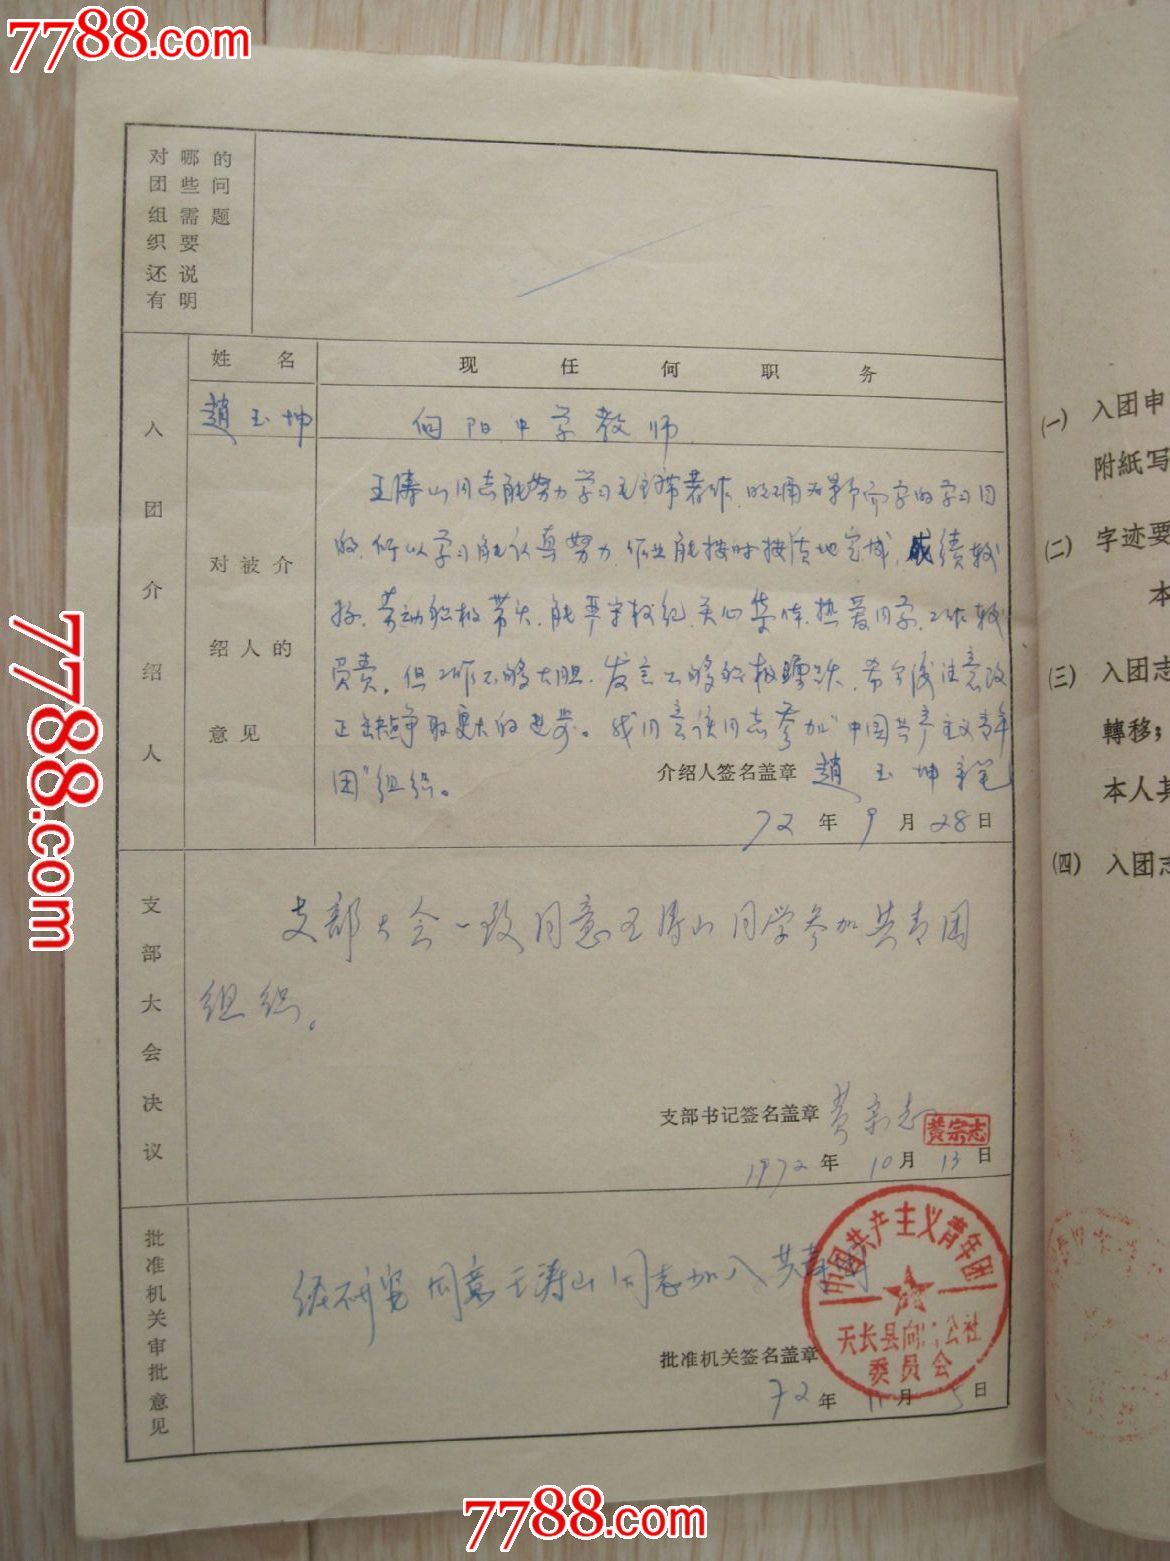 7788.com
对哪的
团些问
组需题
织要
还说
有明
入团介绍人
姓名
现任何职务
趙玉坤
向阳中学教师
对被介
绍人的
意见
王涛山同志能努力学习毛主席著作，明确为革命而学的学习目
的，所以学习能认真努力，作业能按时按质地完成，成绩较
好，劳动积极带头，能严守校纪，关心集体，热爱同学，工作较
负责。但工作不够大胆，发言不够积极踊跃，希今后注意改
正缺点争取更大的进步。我同意该同志参加"中国共产主义青年
团"组织。
介绍人签名盖章 趙玉坤
72年9月28日
7788.com
支部大会决议
支部大会一致同意王涛山同学参加共青团
组织。
支部书记签名盖章 黄宗志
黄宗志
1972年10月13日
批准机关审批意见
经研究同意王涛山同志加入共青团
中国共产主义青年团
天长县向 公社
委员会
批准机关签名盖章
72年11月5日
(一) 入团申
附紙写
(二) 字迹要
本
(三) 入团志
轉移；
本人其
(四) 入团志
7788.com